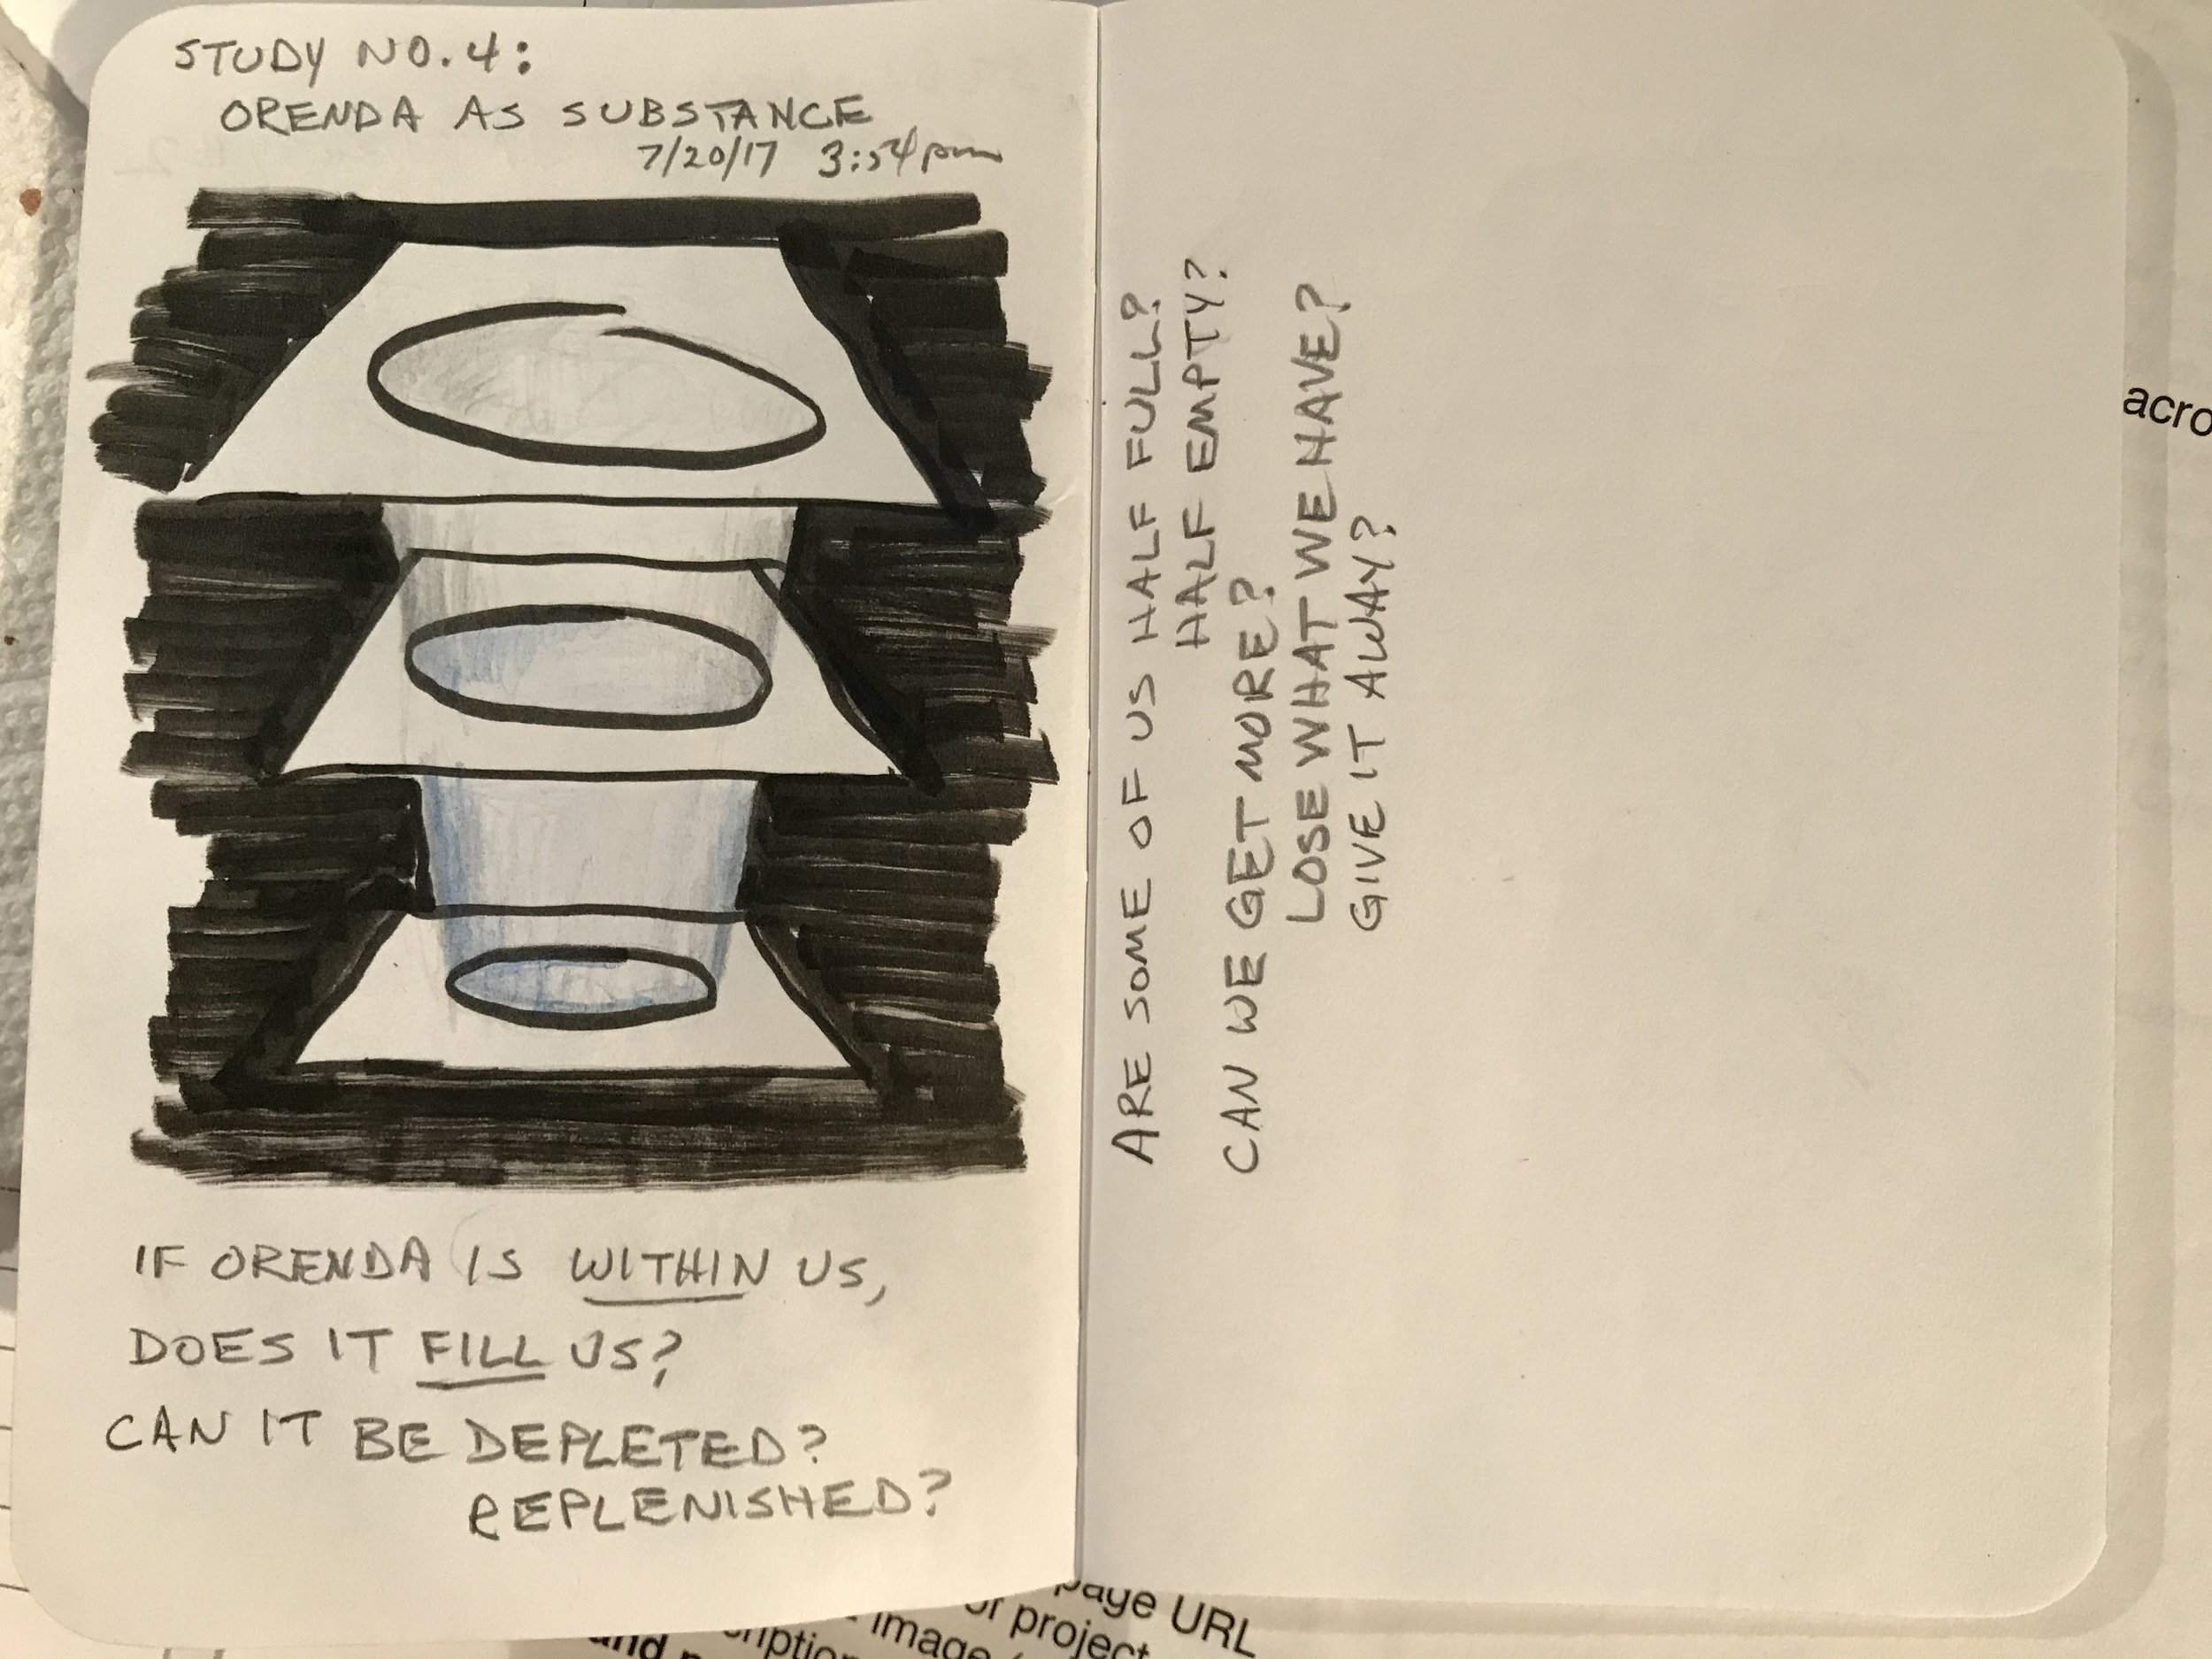 STUDY NO.4:
ORENDA AS SUBSTANCE
7/20/17 3:54pm
IF ORENDA IS WITHIN US,
DOES IT FILL US?
CAN IT BE DEPLETED?
REPLENISHED?
ARE SOME OF US HALF FULL?
HALF EMPTY?
CAN WE GET MORE?
LOSE WHAT WE HAVE?
GIVE IT AWAY?
acro
page URL
or project
image
and